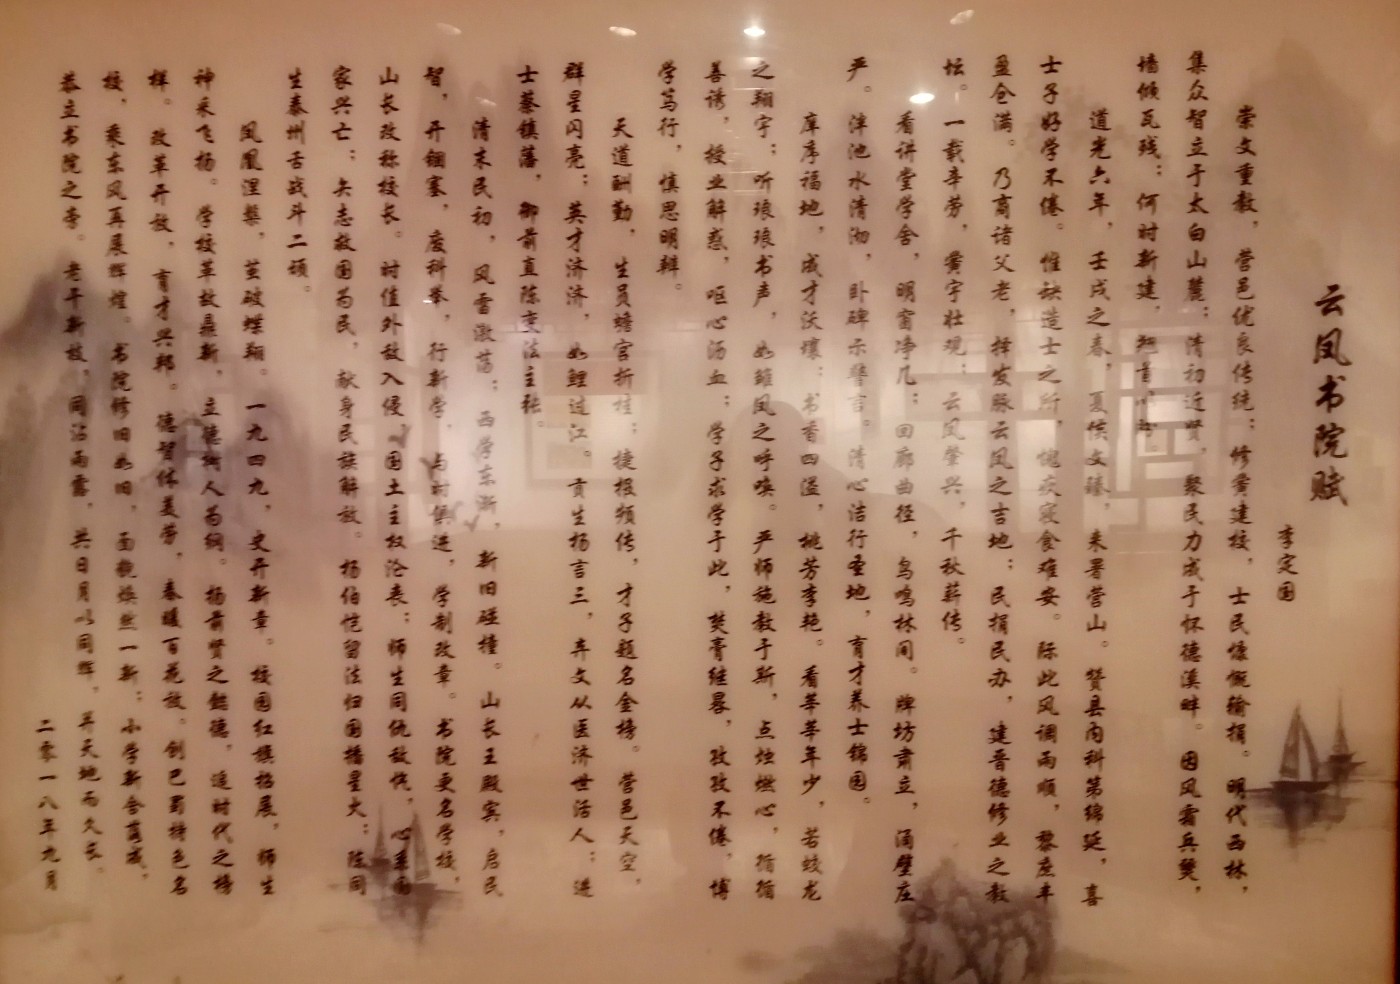 云凤书院赋
李定国
崇文重教，营邑优良传统；修黉建校，士民慷慨输捐。明代西林，
集众智立于太白山麓；清初近贤，聚民力成于怀德溪畔。因风霜兵燹，
墙倾瓦残；何时新建，翘首以
道光六年，壬戌之春，夏侯文臻，来署营山。赞县内科第绵延，喜
士子好学不倦。惟缺造士之所，愧疚寝食难安。际此风调雨顺，黎庶丰
盈仓满。乃商诸父老，择发脉云凤之吉地；民捐民办，建晋德修业之教
坛。一载辛劳，黉宇壮观；云凤肇兴，千秋薪传。
看讲堂学舍，明窗净几；回廊曲径，鸟鸣林间。牌坊肃立，涌壁庄
严。泮池水清沏，卧碑示誓言。清心洁行圣地，育才养士锦园。
庠序福地，成才沃壤；书香四溢，桃芳李艳。看莘莘年少，若蛟龙
之翔宇；听琅琅书声，如雏凤之呼唤。严师施教于斯，点烛燃心，循循
善诱，授业解惑，呕心沥血；学子求学于此，焚膏继晷，孜孜不倦，博
学笃行，慎思明辨。
天道酬勤，生员蟾宫折桂；捷报频传，才子题名金榜。营邑天空，
群星闪亮；英才济济，如鲤过江。贡生杨言三，弃文从医济世活人；进
士蔡镇藩，御前直陈变法主张。
清末民初，风雷激荡；西学东渐，新旧碰撞。山长王殿宾，启民
智，开锢塞，废科举，行新学，与时俱进，学制改章。书院更名学校，
山长改称校长。时值外敌入侵，国土主权沦丧；师生同仇敌忾，心系国
家兴亡；矢志救国为民，献身民族解放。杨伯恺留法归国播星火；陈同
生泰州舌战斗二顽。
凤凰涅槃，茧破蝶翔。一九四九，史开新章。校园红旗招展，师生
神采飞扬。学校革故鼎新，立德树人为纲。杨前贤之懿德，追时代之榜
样。改革开放，育才兴邦。德智体美劳，春暖百花放。创巴蜀特色名
校，乘东风再展辉煌。书院修旧如旧，面貌焕然一新；小学新舍落成，
恭立书院之旁。老干新枝，同沾雨露，共日月以同辉，并天地而久长。
二零一八年九月